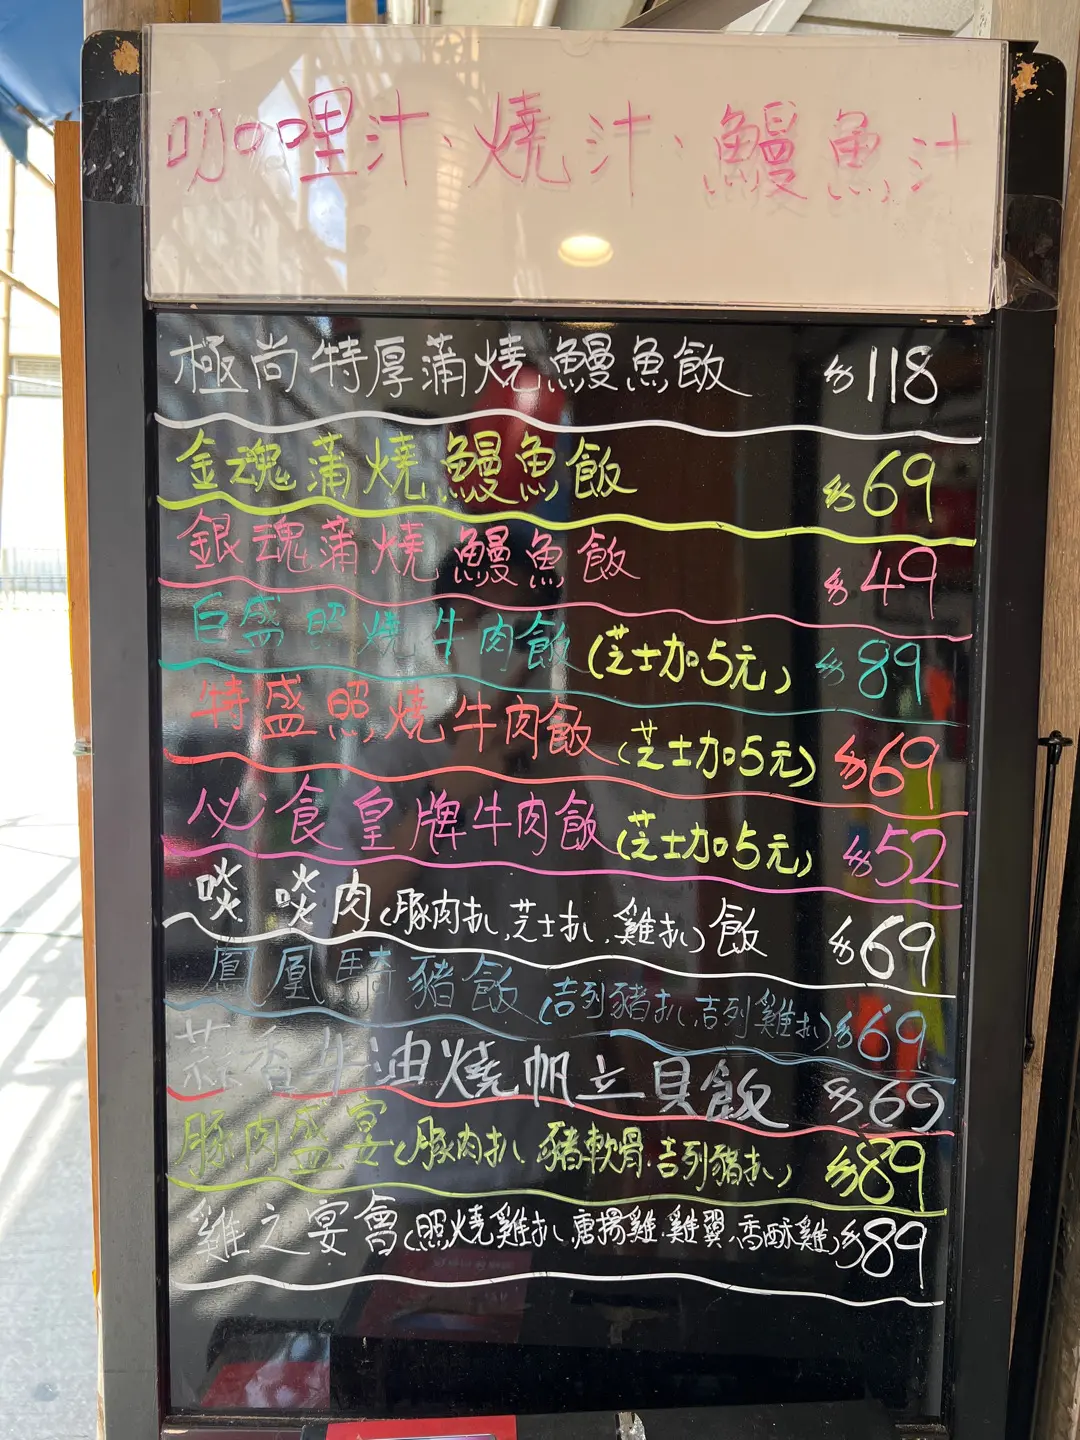 咖哩汁、燒汁、鰻魚汁
極尚特厚蒲燒鰻魚飯 $118
金魂蒲燒鰻魚飯 $69
銀魂蒲燒鰻魚飯 $49
巨盛照燒牛肉飯(芝士加5元) $89
特盛照燒牛肉飯(芝士加5元) $69
必食皇牌牛肉飯(芝士加5元) $52
啖啖肉(豚肉扒,芝士扒,雞扒)飯 $69
鳳凰騎豬飯(吉列豬扒,吉列雞扒) $69
蒜香牛油燒帆立貝飯 $69
豚肉盛宴(豚肉扒.豬軟骨.吉列豬扒) $89
雞之宴會(照燒雞扒.唐揚雞.雞翼.香酥雞) $89